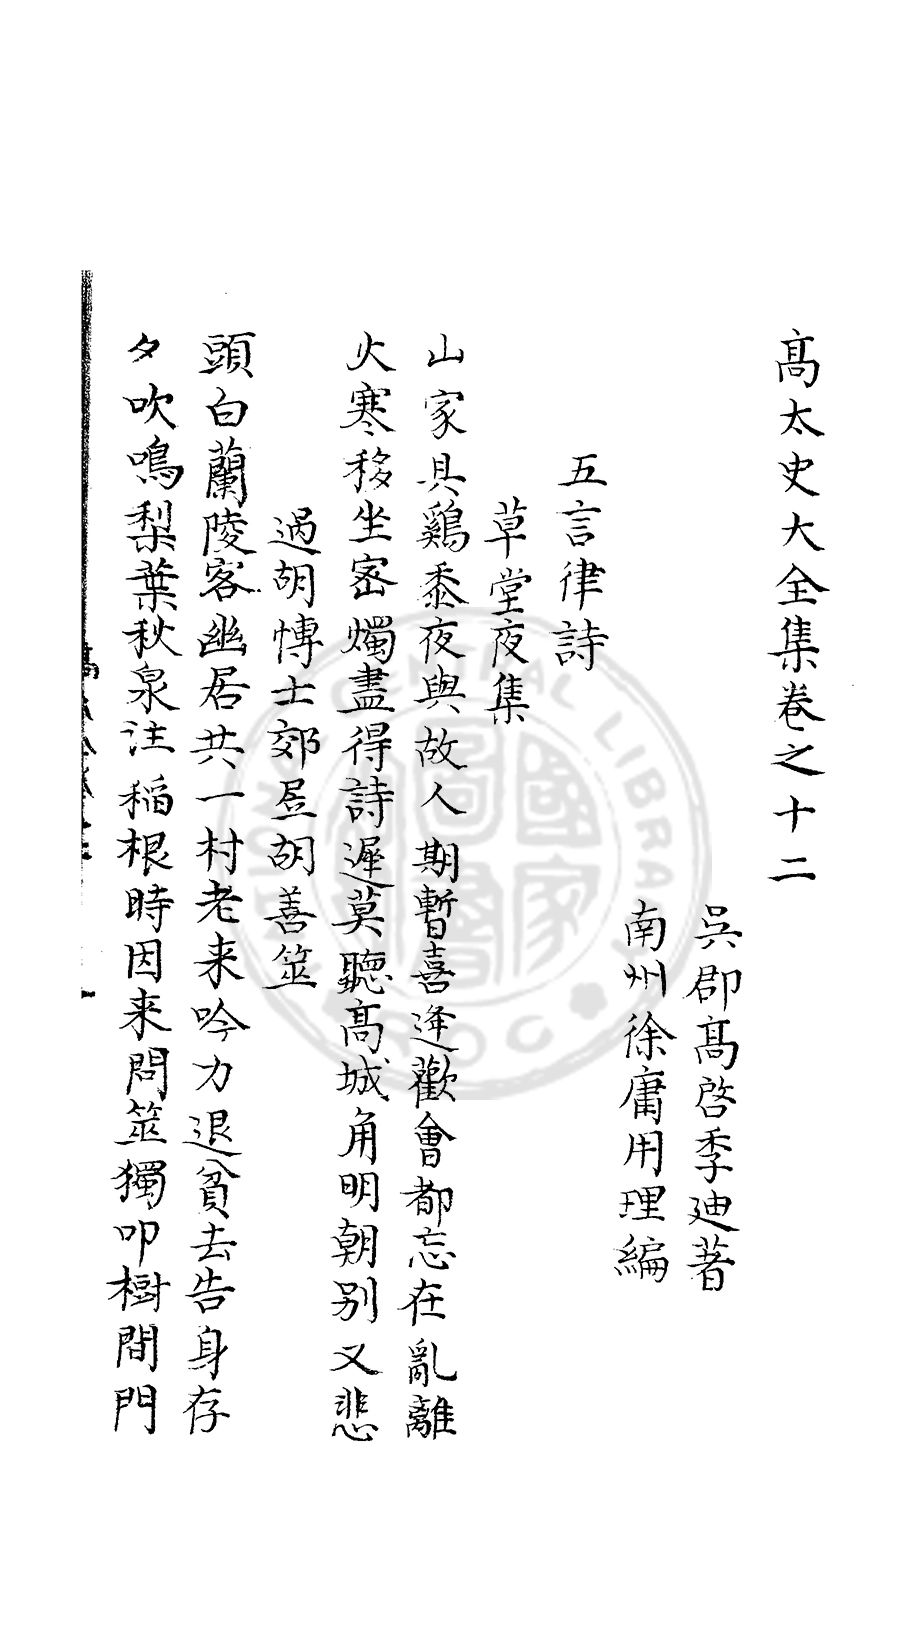 髙太史大全集卷之十二
吳郡髙啓季迪著
南州徐庸用理編
五言律詩
草堂夜集
山家具鷄黍夜與故人期暫喜逢歡會都忘在亂離
火寒移坐宻燭盡得詩遲莫聽髙城角明朝别又悲
過胡博士郊居胡善筮
頭白蘭陵客幽居共一村老来吟力退貧去告身存
夕吹鳴梨葉秋泉注稲根時因来問筮獨叩樹間門
NATIONAL CENTRAL LIBRARY
ROC
國家圖書館